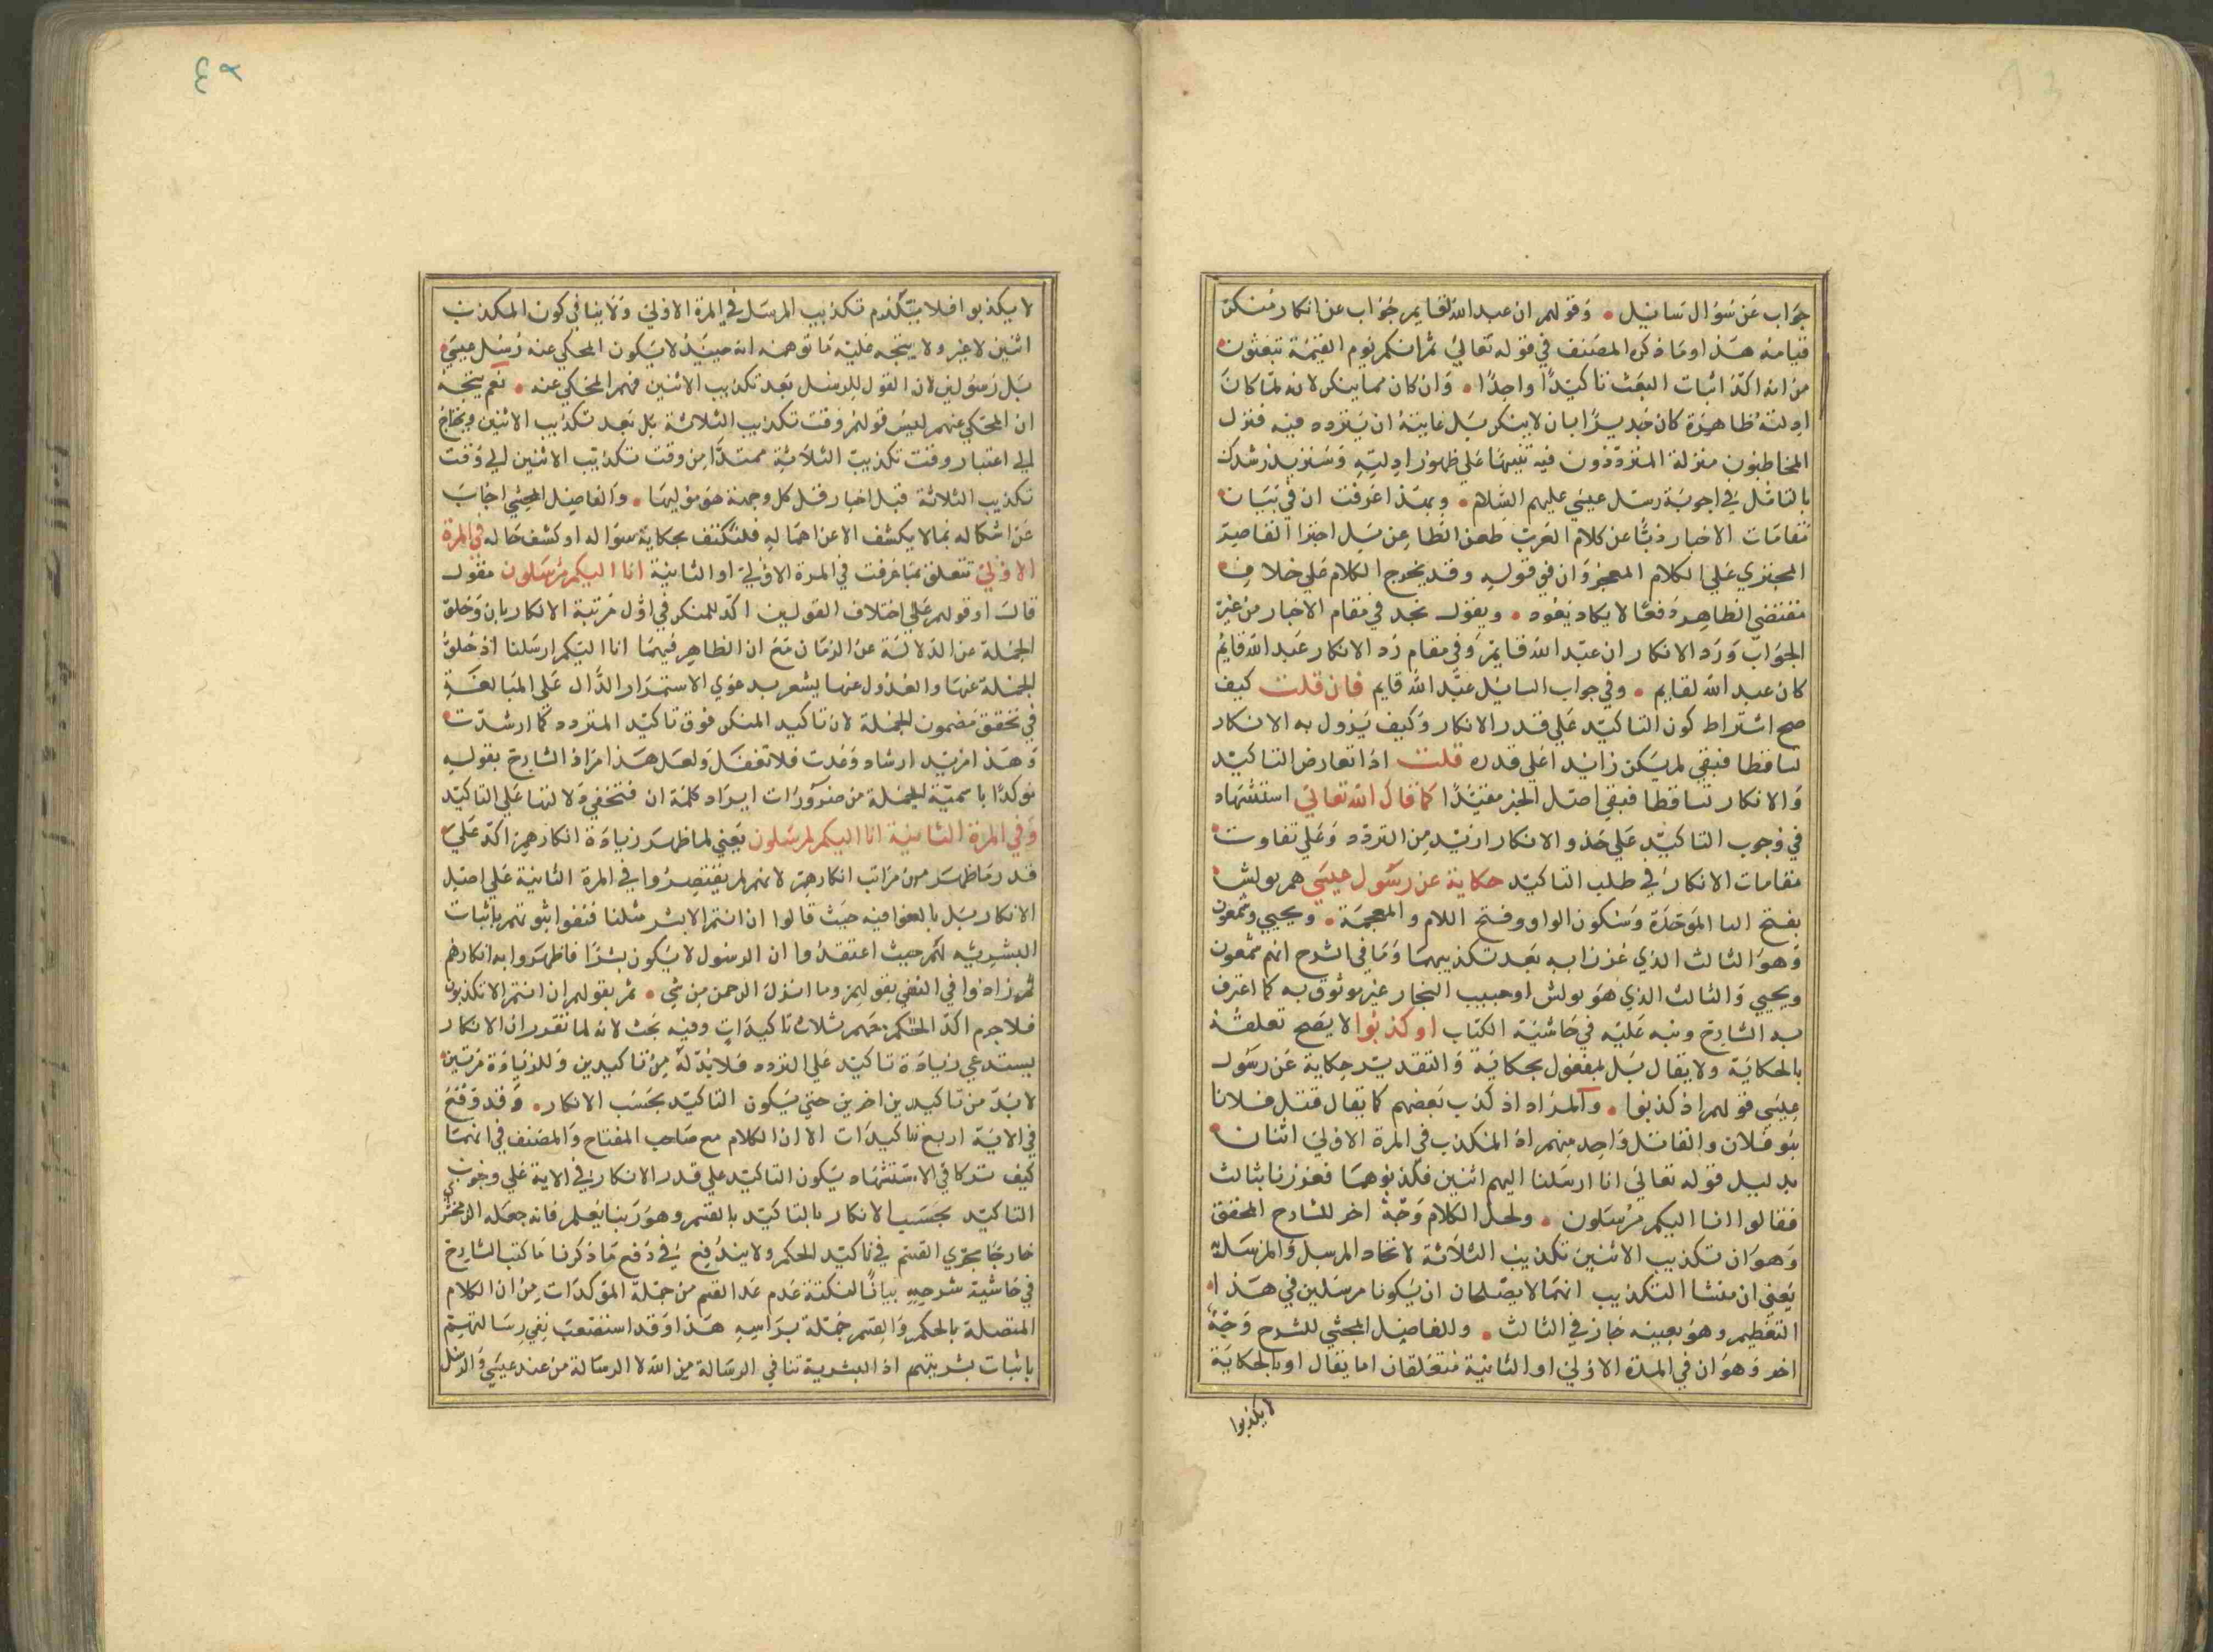 جواب عن سؤال سائل • وقولهم ان عبد الله لقايم جواب عن انكار منكر
قيامه هذا وما ذكره المصنف في قوله تعالى ثم انكم يوم القيمة تبعثون
من انه اكد اثبات البعث تاكيدا واحدا • وان كان مما ينكر لانه لما كان
ادلته ظاهرة كان جديرا بان لا ينكر بل غايته ان يتردد فيه فنزل
المخاطبون منزلة المترددون فيه تنبيها على ظهور ادلته وسنزيد رشدك
بالتامل في اجوبة رسل عيسى عليهم السلام • وبهذا عرفت ان في تبيان
مقامات الاخبار ذبا عن كلام العرب طعن الطاعن بل اجترا القاصد
المجتري على الكلام المعجز وان فوقوله وقد يخرج الكلام على خلاف
مقتضى الظاهر دفعا لا يكاد يعود • ويقول نجد في مقام الاخبار من غير
الجواب ورد الانكار ان عبد الله قايم وفي مقام رد الانكار عبد الله قايم
كان عبد الله لقايم • وفي جواب السايل عبد الله قايم فان قلت كيف
صح اشتراط كون التاكيد على قدر الانكار وكيف يزول به الانكار
تساقطا فبقي لم يكن زايدا على قدره قلت اذا تعارض التاكيد
والانكار تساقطا فبقي اصل الخبر مفيدا كما قال الله تعالى استشهاد
في وجوب التاكيد على حذو الانكار ازيد من التردد وعلى تفاوت
مقامات الانكار في طلب التاكيد حكاية عن رسول عيسى هم بولش
بفتح البا الموحدة وسكون الواو وفتح اللام والمعجمة • ويحيي وشمعون
وهو الثالث الذي عززا به بعد تكذيبهما وما في الشرح انهم شمعون
ويحيي والثالث الذي هو بولش او حبيب النجار غير موثوق به كما اعترف
به الشارح ونبه عليه في حاشية الكتاب اذ كذبوا لا يصح تعلقه
بالحكاية ولا بقال بل بمفعول بحكاية والتقدير حكاية عن رسول
عيسى قولهم اذ كذبوا • والمراد اذ كذب بعضهم كما يقال قتل فلانا
بنو فلان والقاتل واحد منهم اذ المكذب في المرة الاولى اثنان
بدليل قوله تعالى انا ارسلنا اليهم اثنين فكذبوهما فعززنا بثالث
فقالوا انا اليكم مرسلون • ولحل الكلام وجه اخر للشارح المحقق
وهو ان تكذيب الاثنين تكذيب الثلاثة لاتحاد المرسل والمرسلة
يعني ان منشا التكذيب انهما لا يصلحان ان يكونا مرسلين في هذا ا
التعظيم وهو بعينه جاز في الثالث • وللفاضل المحشي للشرح وجه
اخر وهو ان في المرة الاولى او الثانية متعلقان اما بقال او بالحكاية
لا يكذبوا
٤٢
لا يكذبوا فلا يتقدم تكذيب المرسل في المرة الاولى ولا ينافي كون المكذب
اثنين لا غير ولا يتجه عليه ما توهمنه انه حينئذ لا يكون المحكي عنه رسل عيسى
بل رسولين لان القول للرسل بعد تكذيب الاثنين فهم المحكي عنه • نعم يتجه
ان المحكي عنهم ليس قولهم وقت تكذيب الثلاثة بل بعد تكذيب الاثنين ويحتاج
الى اعتبار وقت تكذيب الثلاثة ممتدا من وقت تكذيب الاثنين الى وقت
تكذيب الثلاثة قبل اخبار قبل كل وجهة هو موليها • والفاضل المحشي اجاب
عن اشكاله بما لا يكشف الا عن اهماله فلنكتف بحكاية سؤاله او كشف حاله في المرة
الاولى تتعلق بما عرفت في المرة الاولى او الثانية انا اليكم مرسلون مقول
قالت او قولهم على اختلاف القولين اكد للمنكر في اول مرتبة الانكار بان وخلق
الجملة عن الدلالة عن الزمان مع ان الظاهر فيهما انا اليكم ارسلنا اذ خلو
الجملة عنها والعدول عنها يشعر بدعوي الاستمرار الدال على المبالغة
في تحقق مضمون الجملة لان تاكيد المنكر فوق تاكيد المتردد كما ارشدت
وهذا مزيد ارشاد وعدت فلا تغفل ولعل هذا مراد الشارح بقوله
موكدا باسمية الجملة من ضرورات ايراد كلمة ان فتخفي دلالتها على التاكيد
وفي المرة الثانية انا اليكم لمرسلون يعني لما ظهر زيادة انكارهم اكد على
قدر ما ظهر من مراتب انكارهم لانهم لم يقتصروا في المرة الثانية على اصل
الانكار بل بالغوا فيه حيث قالوا ان انتم الا بشر مثلنا فنفوا نبوتهم باثبات
البشرية لهم حيث اعتقدوا ان الرسول لا يكون بشرا فاظهروا به انكارهم
ثم زادوا في النفي بقولهم وما انزل الرحمن من شي • ثم بقولهم ان انتم الا تكذبون
فلا جرم اكد الحكم بثلاث تاكيدات وفيه بحث لانه لما تقدر ان الانكار
يستدعي زيادة تاكيد على التردد فلا بد له من تاكيدين وللزيادة مرتين
لا بد من تاكيدين اخرين حتي يكون التاكيد بحسب الانكار • وقد وقع
في الاية اربع تاكيدات الا ان الكلام مع صاحب المفتاح والمصنف في انهما
كيف تركا في الاستشهاد يكون التاكيد على قدر الانكار في الاية على وجوب
التاكيد بحسب الانكار بالتاكيد بالقسم وهو ربنا يعلم فانه جعله الزمخشري
خارجا مجري القسم في تاكيد الحكم ولا يندفع في دفع ما ذكرنا ما كتب الشارح
في حاشية شرحه بيانا لنكتة عدم عد القسم من جملة المؤكدات من ان الكلام
المتصلة بالحكم والقسم جملة براسه هذا وقد استصعب نفي رسالتهم
باثبات بشريتهم اذ البشرية تنافي الرسالة من الله لا الرسالة من عند عيسى والرسل